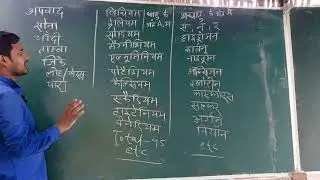 अपवाद
सोना
चाँदी
ताम्बा
जिंक
पारा
लिथियम
बेरिलियम
सोडियम
मैग्नीशियम
एल्युमिनियम
पोटैशियम
कैल्शियम
स्कैंडियम
टाइटेनियम
वैनेडियम
Total - 95
etc
हाइड्रोजन
कार्बन
नाइट्रोजन
ऑक्सीजन
फ्लोरीन
फास्फोरस
सल्फर
आर्गन
नियॉन
etc